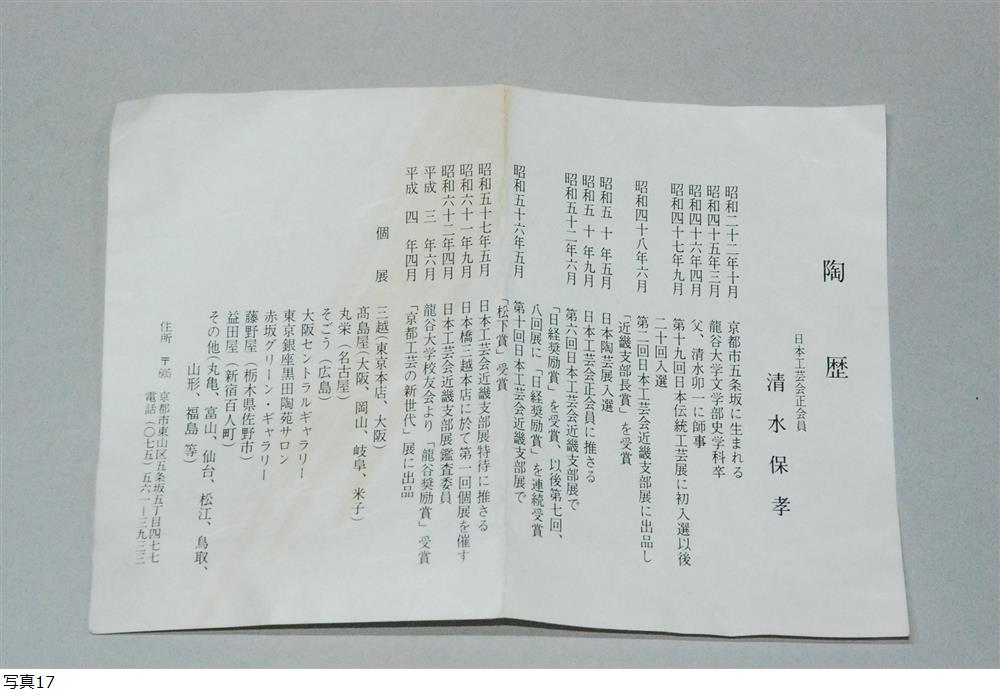 陶歴
日本工芸会正会員
清水保孝
昭和二十二年十月 京都市五条坂に生まれる
昭和四十五年三月 龍谷大学文学部史学科卒
昭和四十六年四月 父、清水卯一に師事
昭和四十七年九月 第十九回日本伝統工芸展に初入選以後
二十回入選
昭和四十八年六月 第二回日本工芸会近畿支部展に出品し
「近畿支部長賞」を受賞
昭和五十年五月 日本陶芸展入選
昭和五十年九月 日本工芸会正会員に推さる
昭和五十二年六月 第六回日本工芸会近畿支部展で
「日経奨励賞」を受賞、以後第七回、
八回展に「日経奨励賞」を連続受賞
昭和五十六年五月 第十回日本工芸会近畿支部展で
「松下賞」受賞
昭和五十七年五月 日本工芸会近畿支部展特待に推さる
昭和六十一年九月 日本橋三越本店に於て第一回個展を催す
昭和六十二年四月 日本工芸会近畿支部展鑑査委員
平成三年六月 龍谷大学校友会より「龍谷奨励賞」受賞
平成四年四月 「京都工芸の新世代」展に出品
個展
三越(東京本店、大阪)
髙島屋(大阪、岡山、岐阜、米子)
丸栄(名古屋)
そごう(広島)
大阪セントラルギャラリー
東京銀座黒田陶苑サロン
赤坂グリーン・ギャラリー
藤野屋(栃木県佐野市)
益田屋(新宿百人町)
その他(丸亀、富山、仙台、松江、鳥取、
山形、福島 等)
住所 〒605 京都市東山区五条坂五丁目四七七
電話(〇七五)五六一ー三九三三
写真17